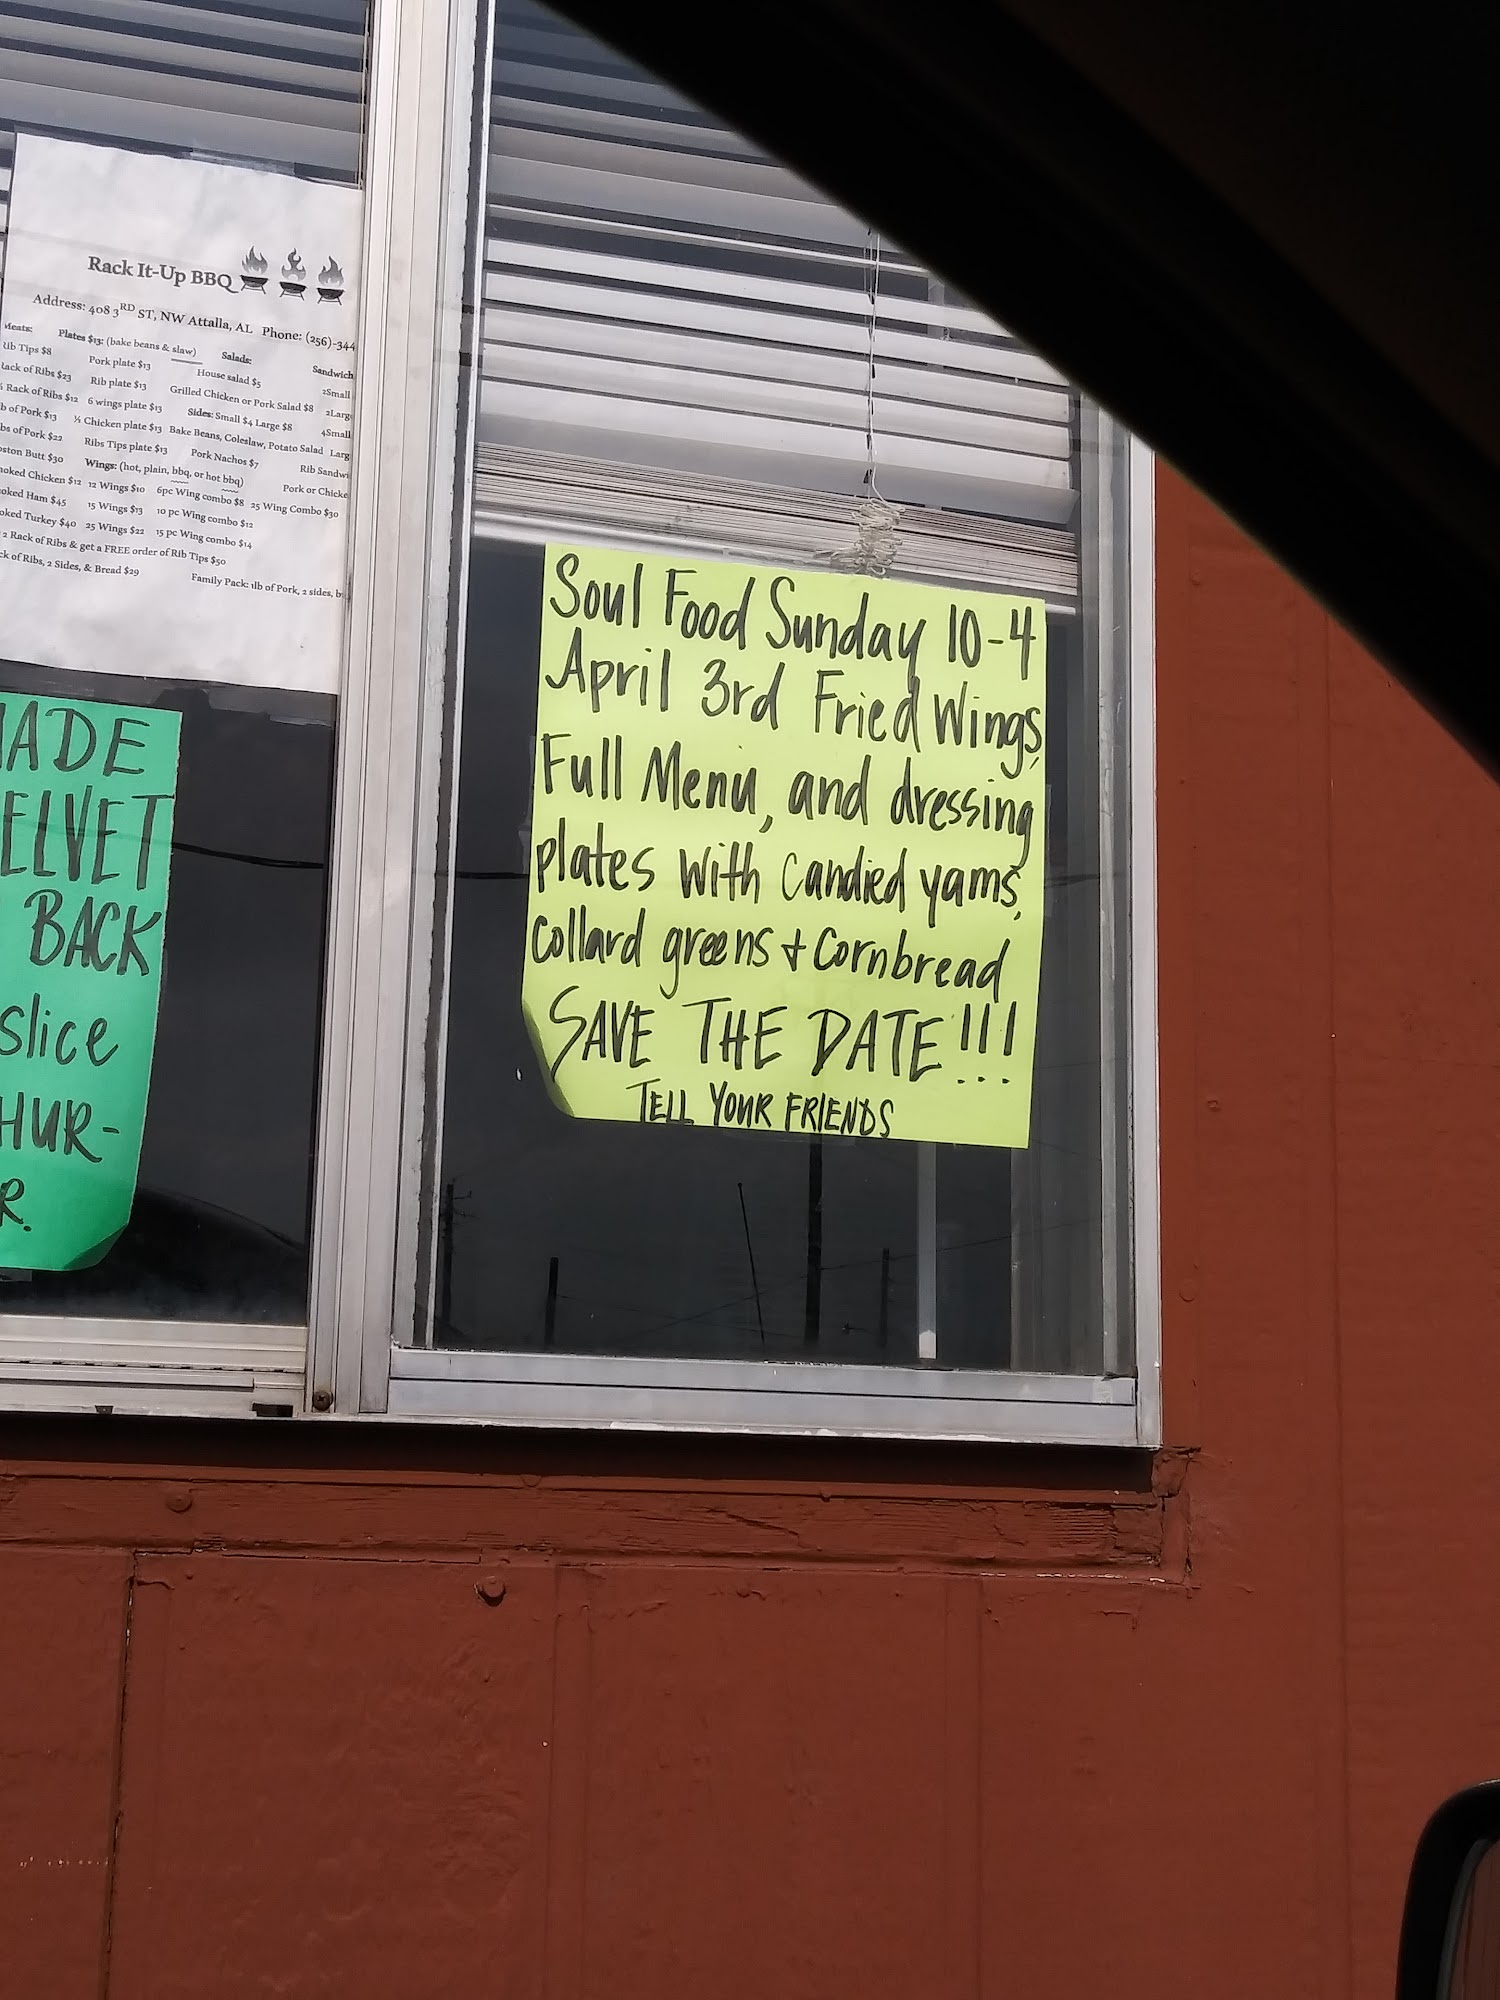 Rack It-Up BBQ
Address: 408 3RD ST, NW Attalla, AL Phone: (256)-344
Meats: Plates $13: (bake beans & slaw) Salads: Sandwich
Rib Tips $8 Pork plate $13 House salad $5 2Small
Rack of Ribs $23 Rib plate $13 Grilled Chicken or Pork Salad $8 2Larg
½ Rack of Ribs $12 6 wings plate $13 Sides: Small $4 Large $8 4Small
b of Pork $13 ½ Chicken plate $13 Bake Beans, Coleslaw, Potato Salad Larg
bs of Pork $22 Ribs Tips plate $13 Pork Nachos $7 Rib Sandwi
oston Butt $30 Wings: (hot, plain, bbq, or hot bbq) Pork or Chicke
moked Chicken $12 12 Wings $10 6pc Wing combo $8 25 Wing Combo $30
oked Ham $45 15 Wings $13 10 pc Wing combo $12
oked Turkey $40 25 Wings $22 15 pc Wing combo $14
2 Rack of Ribs & get a FREE order of Rib Tips $50
ck of Ribs, 2 Sides, & Bread $29 Family Pack: 1lb of Pork, 2 sides, b
MADE
ELVET
BACK
slice
HUR-
R.
Soul Food Sunday 10-4
April 3rd Fried Wings,
Full Menu, and dressing
plates with candied yams,
collard greens + Cornbread
SAVE THE DATE!!!
TELL YOUR FRIENDS